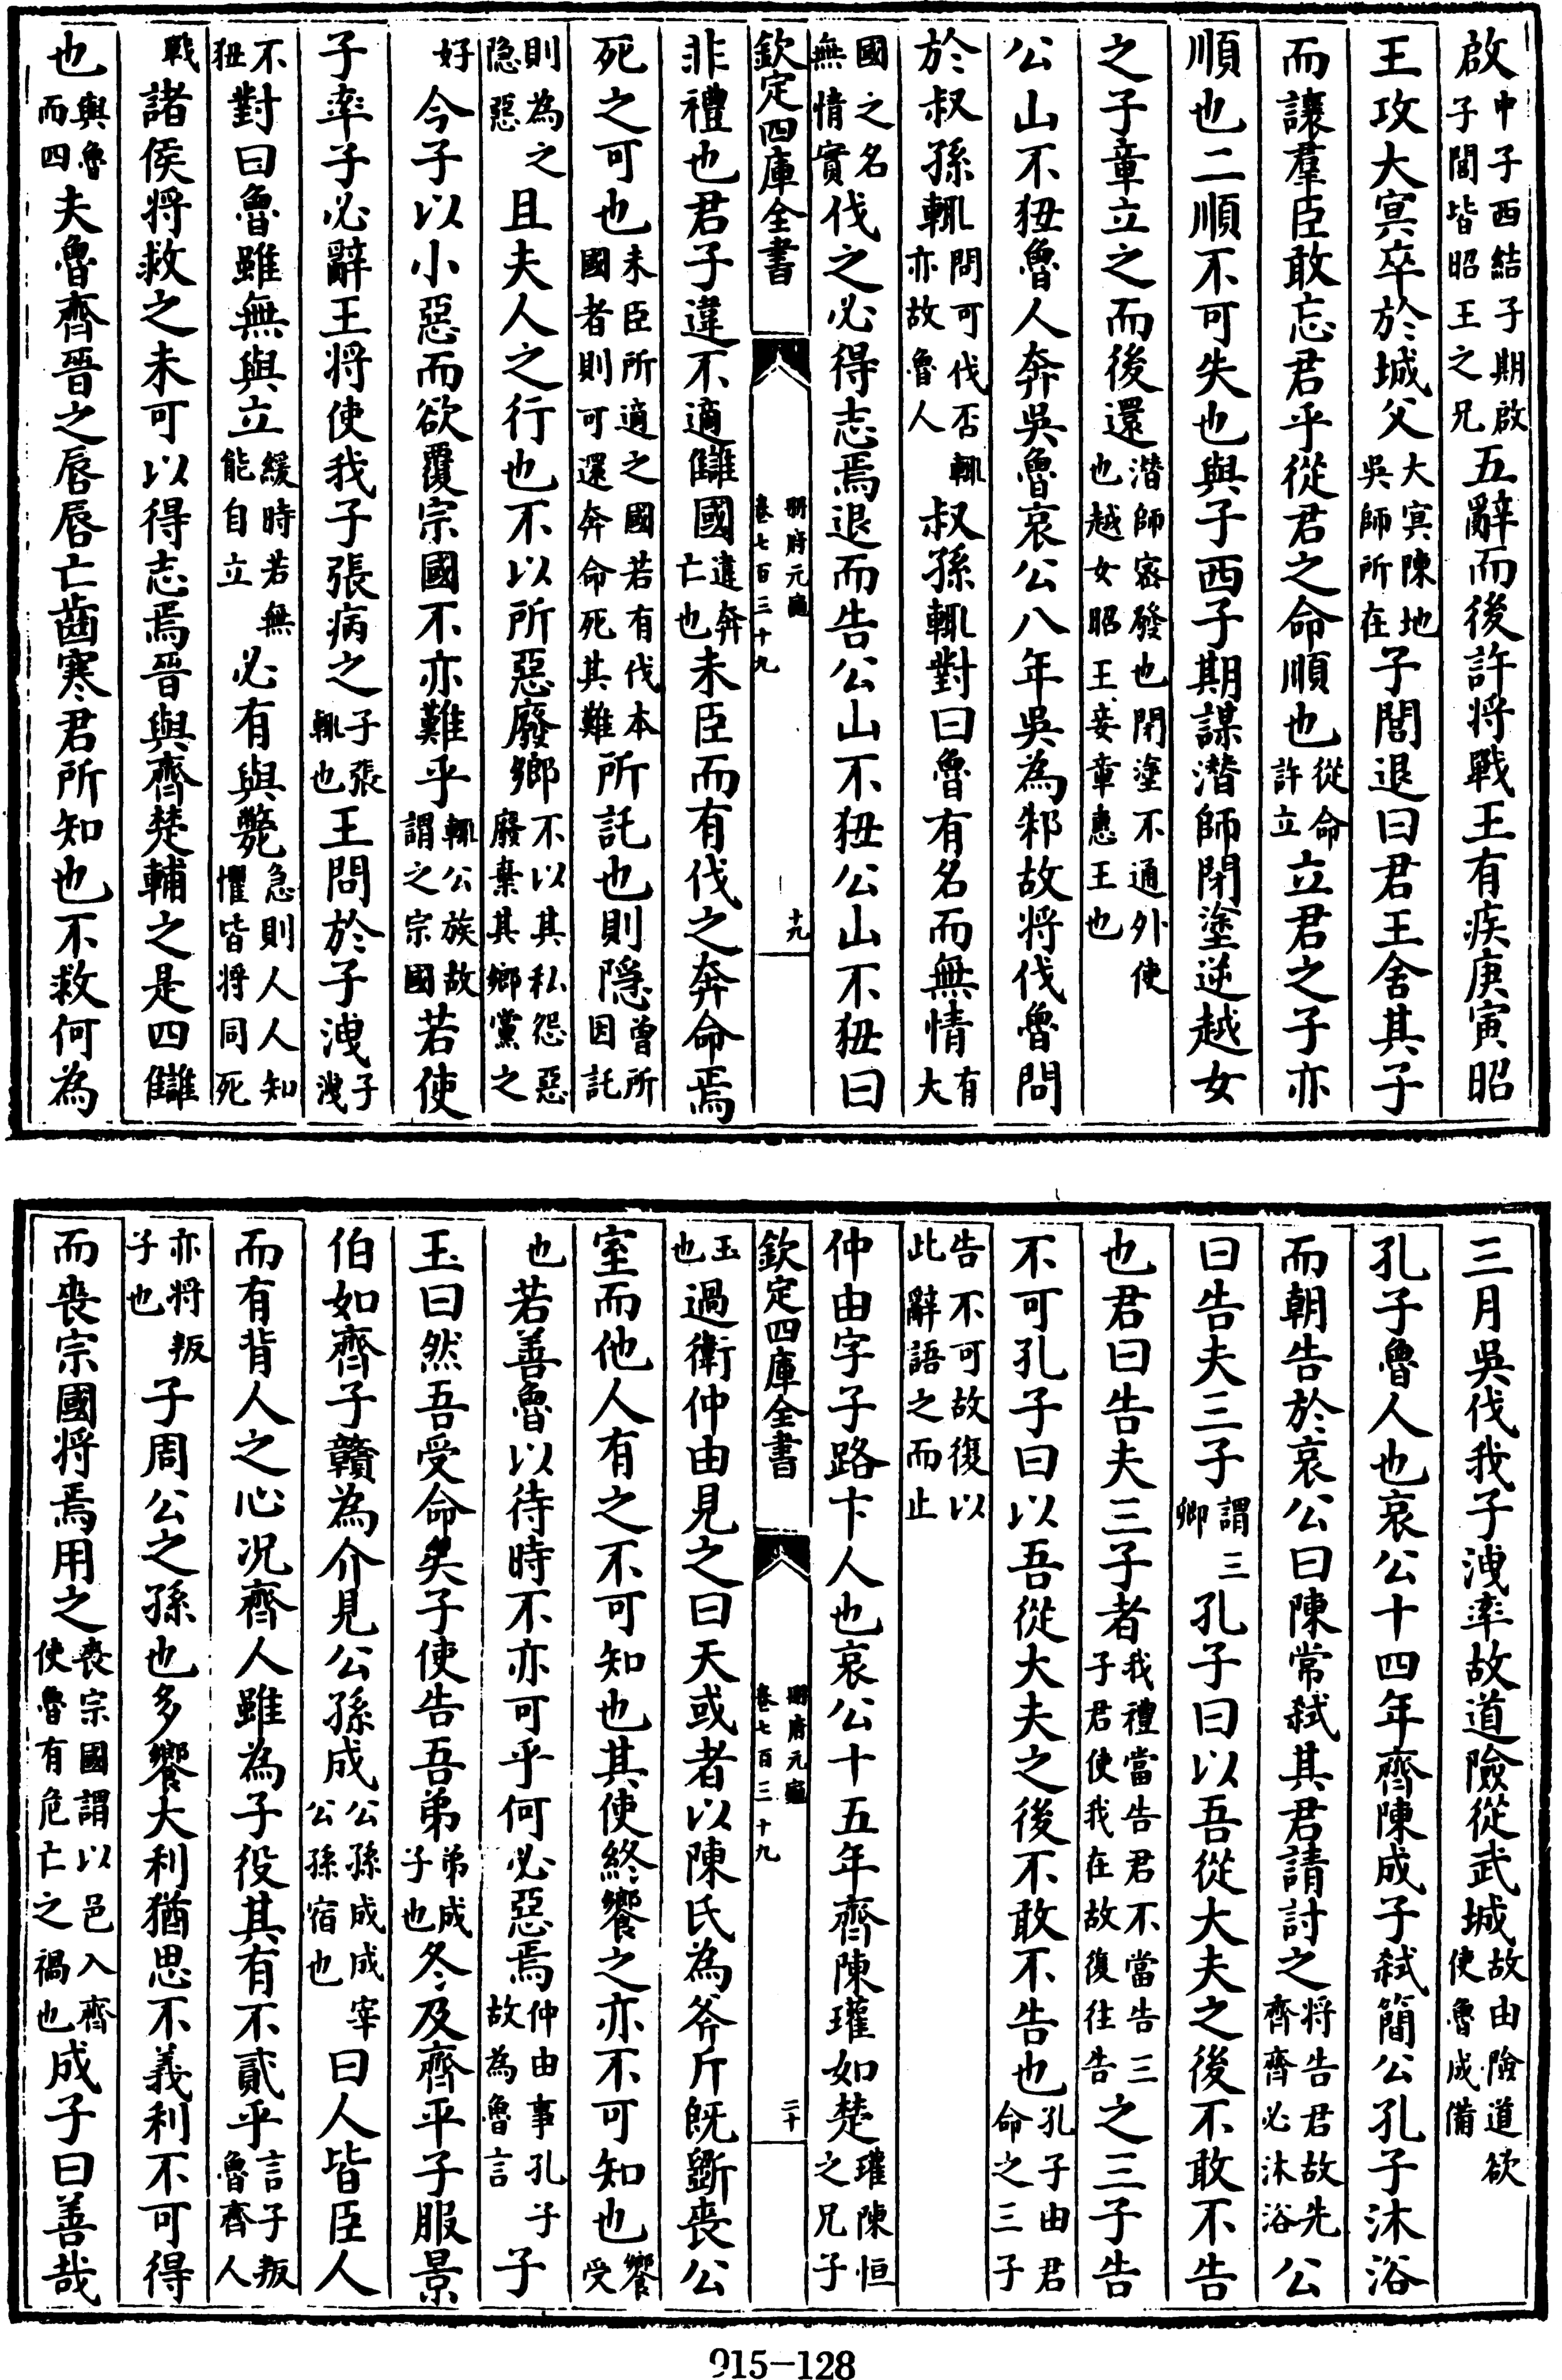 啟申子西結子期啟子閭皆昭王之兄五辭而後許将戰王有疾庚寅昭
王攻大冥卒於城父大冥陳地吳師所在子閭退曰君王舍其子
而讓羣臣敢忘君乎從君之命順也從命許立立君之子亦
順也二順不可失也與子西子期謀潜師閉塗逆越女
之子章立之而後還潜師宻發也閉塗不通外使也越女昭王妾章惠王也
公山不狃魯人奔吳魯哀公八年吳為邾故将伐魯問
於叔孫輒問可伐否輒亦故魯人叔孫輒對曰魯有名而無情有大
國之名無情實伐之必得志焉退而告公山不狃公山不狃曰
欽定四庫全書 冊府元龜卷七百三十九 十九
非禮也君子違不適讎國違奔亡也未臣而有伐之奔命焉
死之可也未臣所適之國若有伐本國者則可還奔命死其難所託也則隠曾所因託
則為之隠惡且夫人之行也不以所惡廢鄉不以其私怨惡廢棄其鄉黨之
好今子以小惡而欲覆宗國不亦難乎輒公族故謂之宗國若使
子率子必辭王将使我子張病之子張輒也王問於子洩子洩
不狃對曰魯雖無與立緩時若無能自立必有與斃急則人人知懼皆将同死
戰諸侯将救之未可以得志焉晉與齊楚輔之是四讎
也與魯而四夫魯齊晉之唇唇亡齒寒君所知也不救何為
三月吳伐我子洩率故道險從武城故由險道欲使魯成備
孔子魯人也哀公十四年齊陳成子弑簡公孔子沐浴
而朝告於哀公曰陳常弑其君請討之将告君故先齊齊必沐浴公
曰告夫三子謂三卿孔子曰以吾從大夫之後不敢不告
也君曰告夫三子者我禮當告君不當告三子君使我在故復往告之三子告
不可孔子曰以吾從大夫之後不敢不告也孔子由君命之三子
告不可故復以此辭語之而止
仲由字子路卞人也哀公十五年齊陳瓘如楚瓘陳恒之兄子
欽定四庫全書 冊府元龜卷七百三十九 二十
玉也過衛仲由見之曰天或者以陳氏為斧斤既斵喪公
室而他人有之不可知也其使終饗之亦不可知也饗受
也若善魯以待時不亦可乎何必惡焉仲由事孔子故為魯言子
玉曰然吾受命矣子使告吾弟弟成子也冬及齊平子服景
伯如齊子贛為介見公孫成公孫成成宰公孫宿也曰人皆臣人
而有背人之心况齊人雖為子役其有不貳乎言子叛魯齊人
亦将叛子也子周公之孫也多饗大利猶思不義利不可得
而喪宗國将焉用之喪宗國謂以邑入齊使魯有危亡之禍也成子曰善哉
915-128